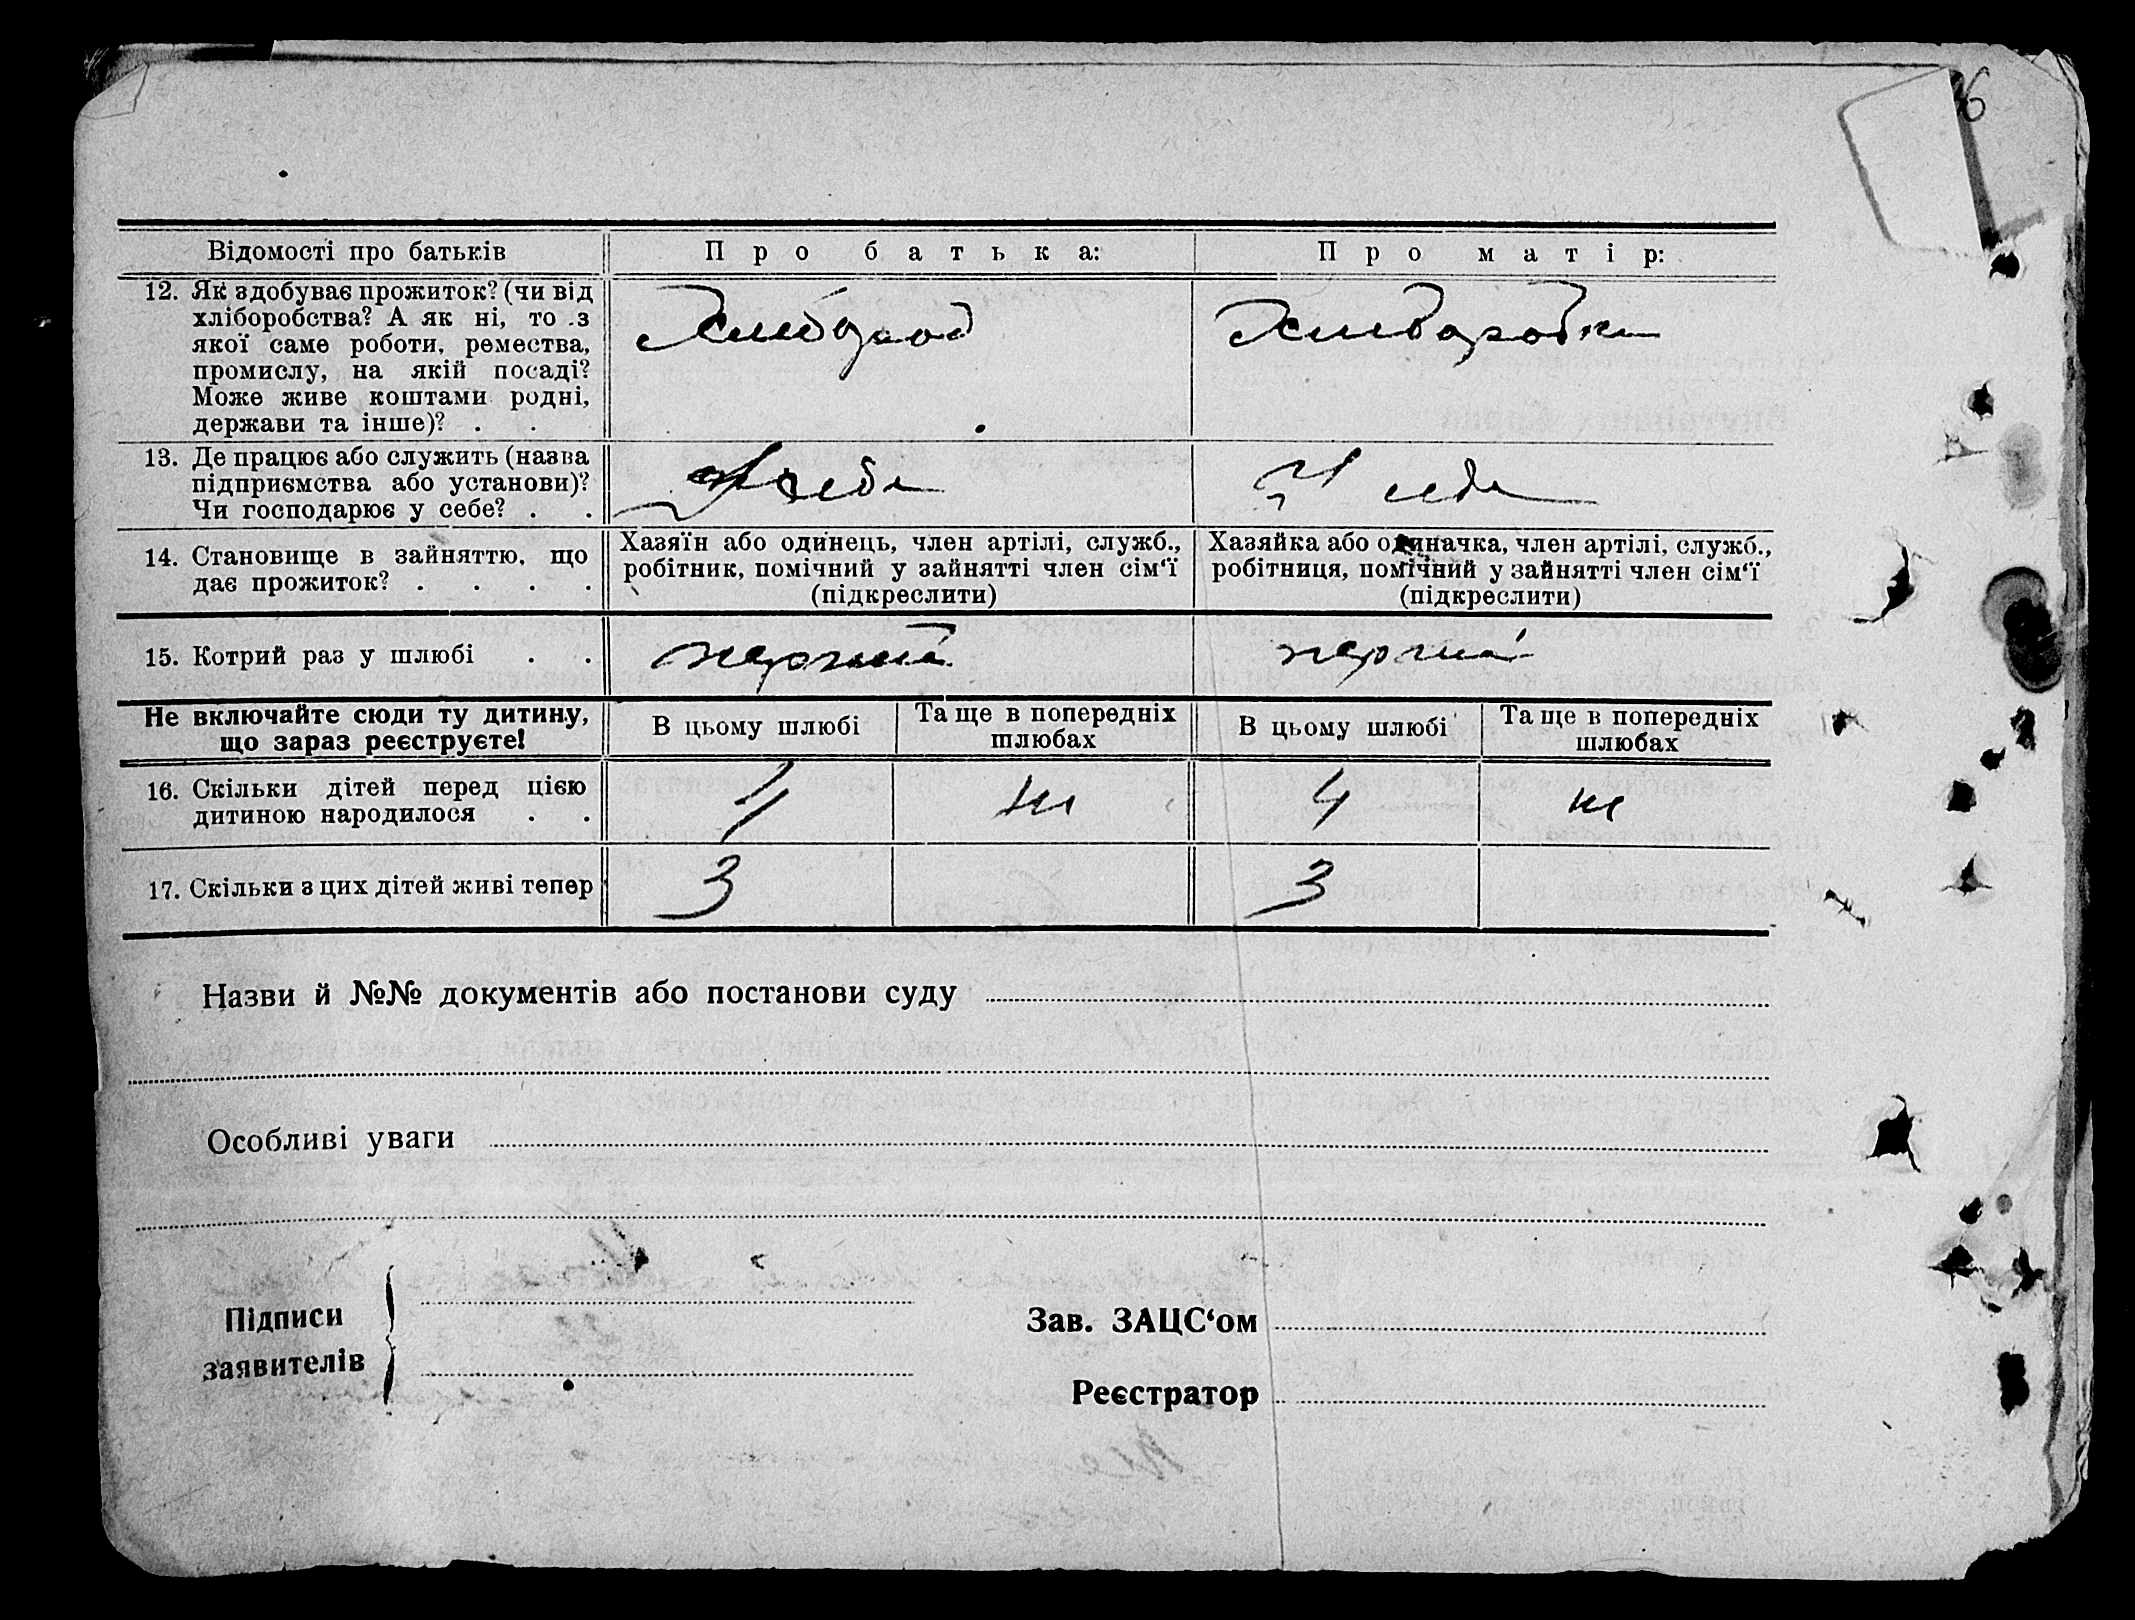 6
Відомості про батьків Про батька: Про матір:
12. Як здобуває прожиток? (чи від
хліборобства? А як ні, то з
якої саме роботи, ремества,
промислу, на якій посаді?
Може живе коштами родні,
держави та інше)? . .
Хлибороб Хлиборобка
13. Де працює або служить (назва
підприємства або установи)?
Чи господарює у себе? . .
У себе У себе
14. Становище в зайняттю, що
дає прожиток? . . . .
Хазяїн або одинець, член артілі, служб.,
робітник, помічний у зайнятті член сім‘ї
(підкреслити)
Хазяйка або одиначка, член артілі, служб.,
робітниця, помічний у зайнятті член сім‘ї
(підкреслити)
15. Котрий раз у шлюбі . . перший перший
Не включайте сюди ту дитину,
що зараз реєструєте!
В цьому шлюбі
Та ще в попередніх
шлюбах
В цьому шлюбі
Та ще в попередніх
шлюбах
16. Скільки дітей перед цією
дитиною народилося . .
4 ні 4 ні
17. Скільки з цих дітей живі тепер 3 3
Назви й №№ документів або постанови суду
Особливі уваги
Підписи
заявителів
Зав. ЗАЦС‘ом
Реєстратор